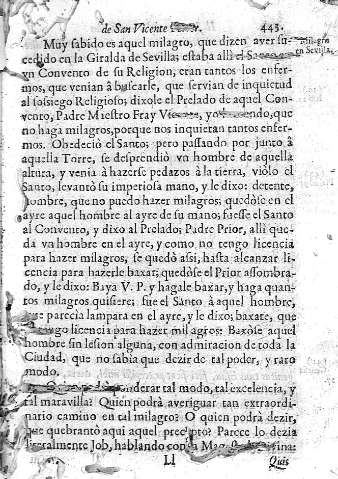 de San Vicente 443.
Muy sabido es aquel milagro, que dizen aver su-
cedido en la Giralda de Sevilla; estaba alli el
vn Convento de su Religion; eran tantos los enfer-
mos, que venian à buscarle, que servian de inquietud
al sossiego Religioso; dixole el Prelado de aquel Con-
vento, Padre Maestro Fray
no haga milagros, porque nos inquietan tantos enfer-
mos. Obedeciò el Santo; pero passando por junto à
aquella Torre, se desprendiò vn hombre de aquella
altura, y venia à hazerse pedazos à la tierra, viòlo el
Santo, levantò su imperiosa mano, y le dixo: detente,
hombre, que no puedo hazer milagros; quedòse en el
ayre aquel hombre al ayre de su mano; fuesse el Santo
al Convento, y dixo al Prelado; Padre Prior, alli que-
da vn hombre en el ayre, y como no tengo licencia
para hazer milagros, se quedò assi, hasta alcanzar li-
cencia para hazerle baxar; quedòse el Prior assombra-
do, y le dixo: Baya V. P. y hagale baxar, y haga quan-
tos milagros quisiere; fue el Santo à aquel hombre,
parecia lampara en el ayre, y le dixo; baxate, que
tengo licencia para hazer milagros: Baxòse aquel
hombre sin lesion alguna, con admiracion de toda la
Ciudad, que no sabia que dezir de tal poder, y raro
modo.
tal modo, tal excelencia, y
tal maravilla? Quien podrà averiguar tan extraordi-
nario camino en tal milagro? O quien podrà dezir,
que quebrantò aqui aquel precepto? Parece lo dezia
literalmente Job, hablando con
Ll Quis
milagro
en Sevilla